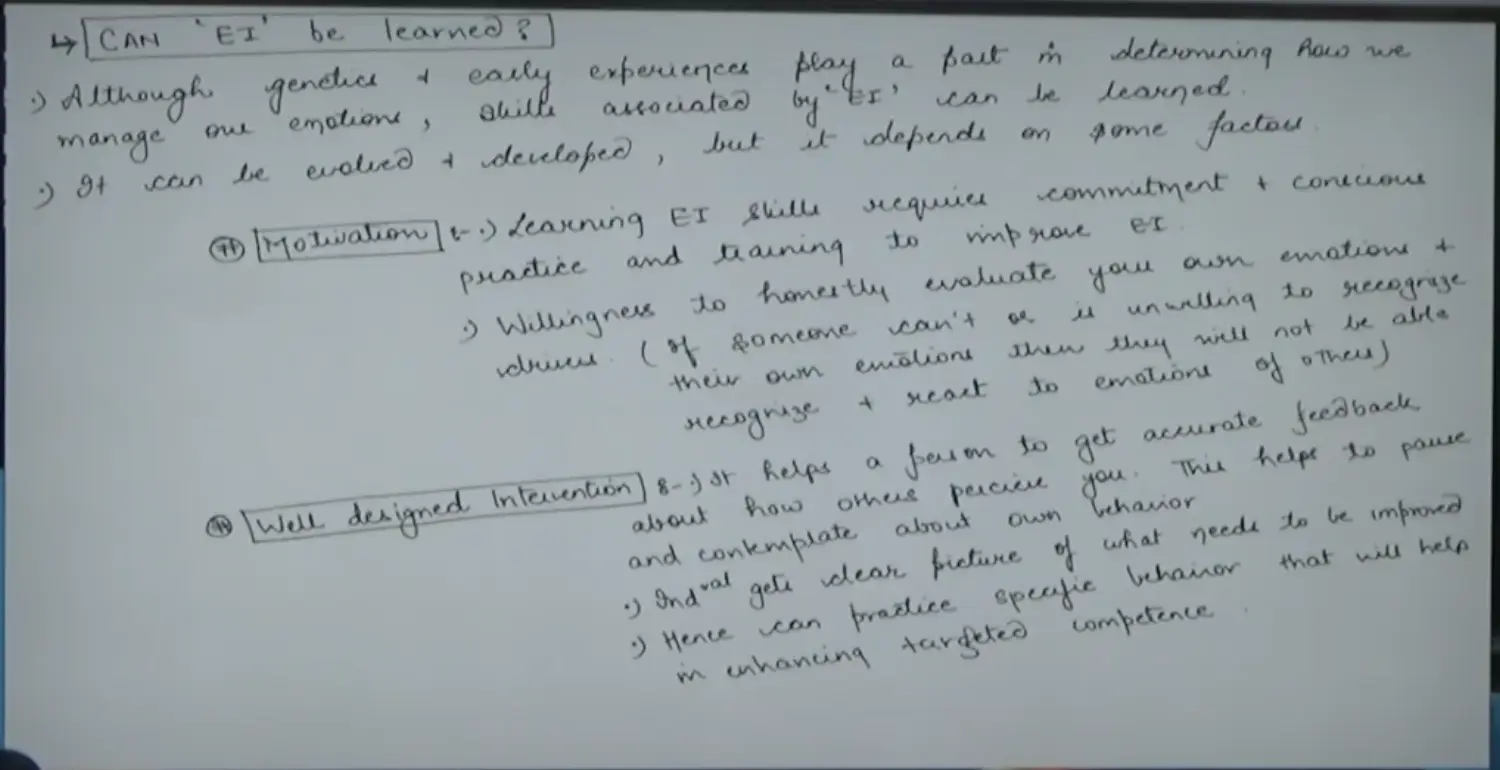 ↳ CAN 'EI' be learned?
·) Although genetics + early experiences play a part in determining how we
manage our emotions, skills associated by 'EI' can be learned.
·) It can be evolved + developed, but it depends on some factors.
Motivation :- ·) Learning EI skills requires commitment + conscious
practice and training to improve EI.
·) Willingness to honestly evaluate your own emotions +
drives. (If someone can't or is unwilling to recognize
their own emotions then they will not be able
recognize + react to emotions of others)
Well designed Intervention :- ·) It helps a person to get accurate feedback
about how others percieve you. This helps to pause
and contemplate about own behavior
·) Ind^ual gets clear picture of what needs to be improved
·) Hence can practice specific behavior that will help
in enhancing targeted competence.